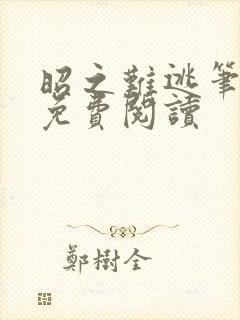 昭之難逃筆
免費閱讀
鄭樹全